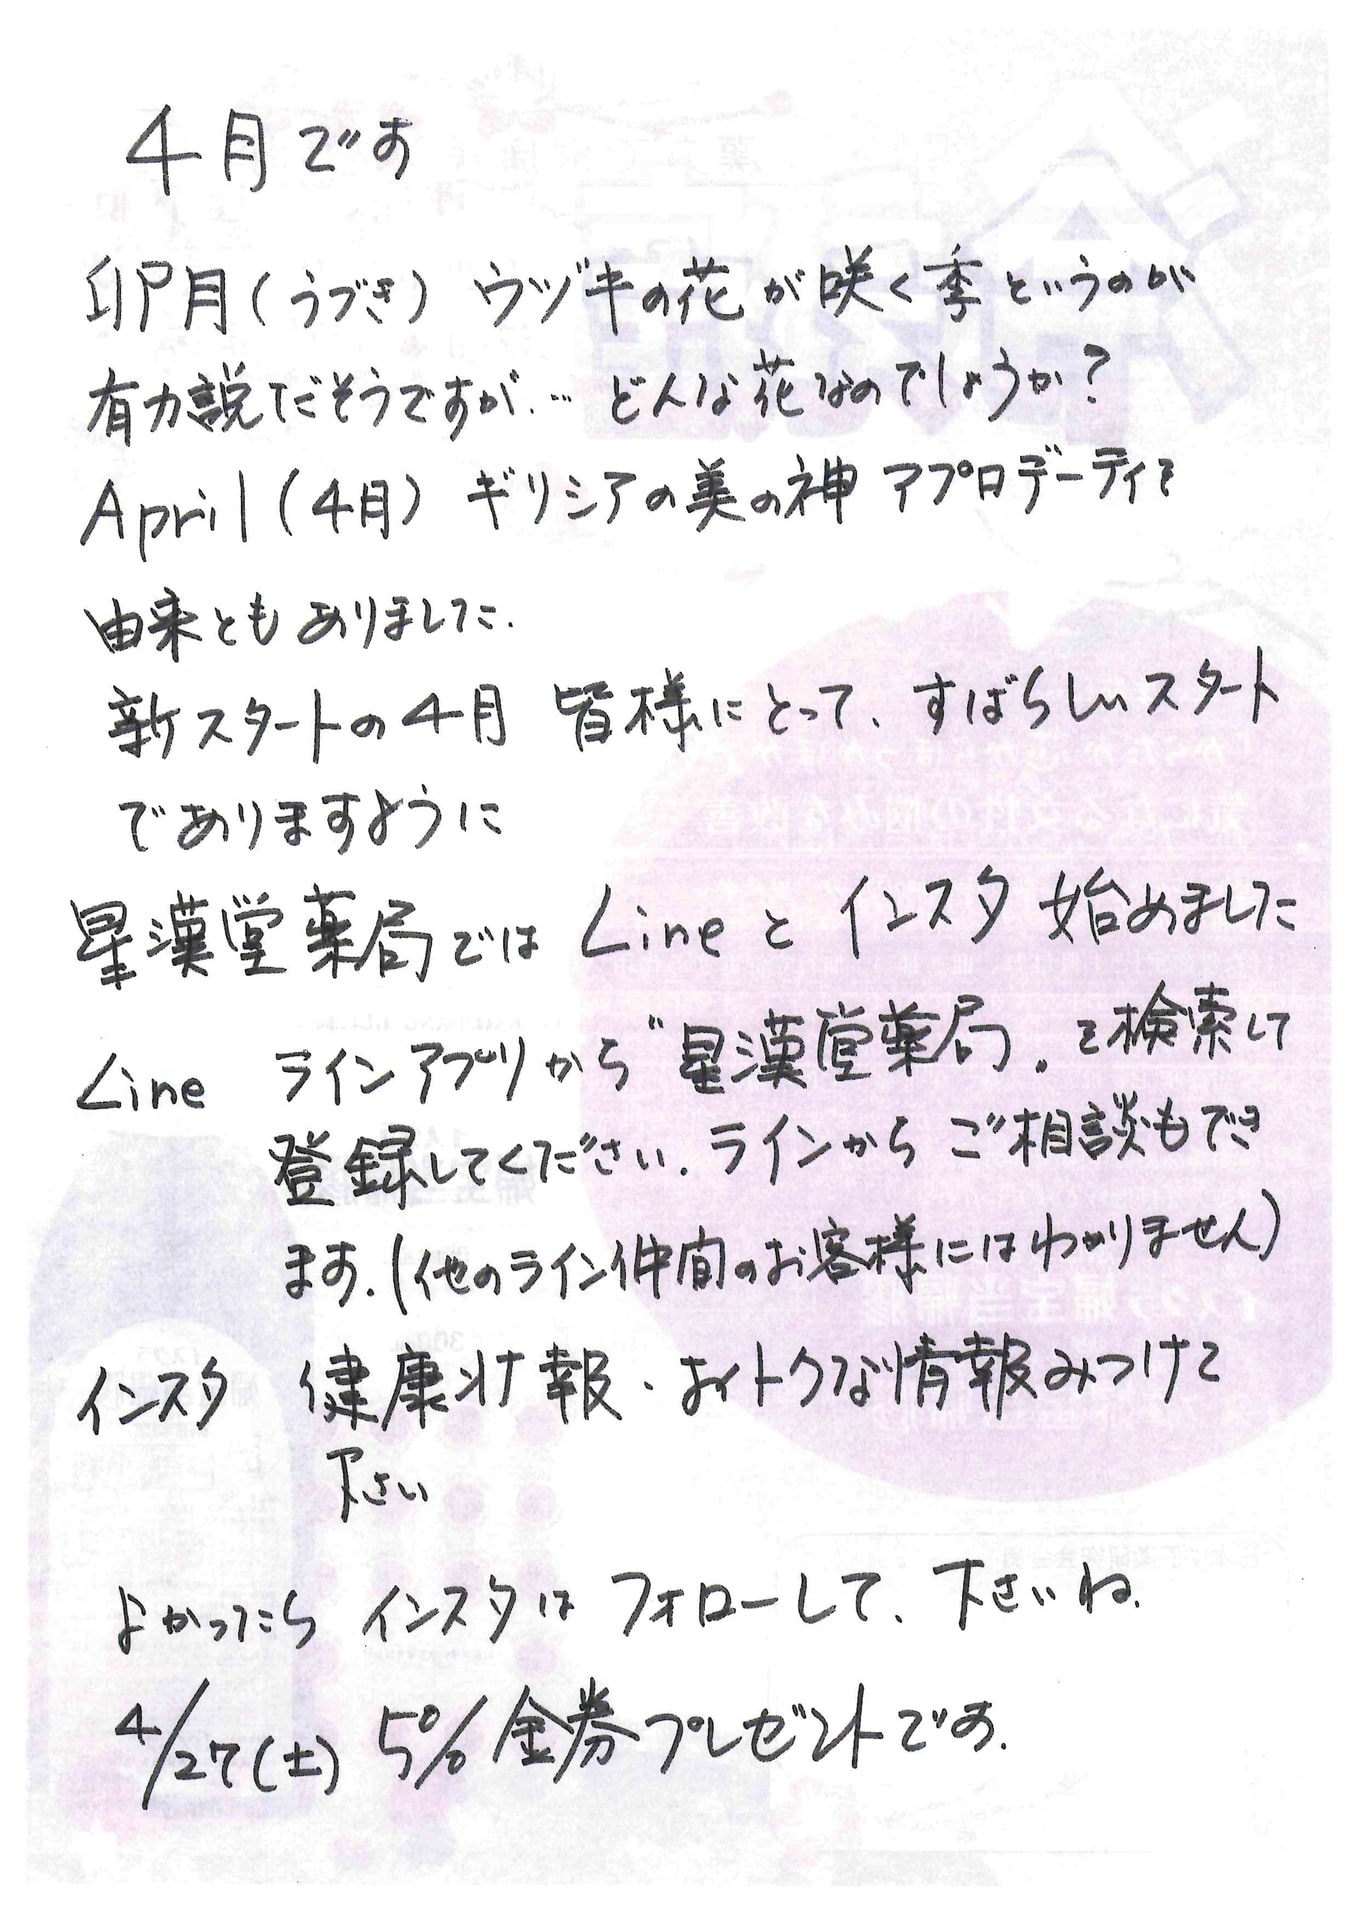 4月です
卯月(うづき) ウヅキの花が咲く季というのが
有力説だそうですが… どんな花なのでしょうか?
April(4月) ギリシアの美の神 アプロデーティを
由来ともありました.
新スタートの4月 皆様にとって、すばらしいスタート
でありますように
星漢堂薬局では Lineとインスタ 始めました
Line ラインアプリから“星漢堂薬局。を検索して
登録してください. ラインからご相談もでき
ます.(他のライン仲間のお客様にはわかりません)
インスタ 健康情報・おトクな情報みつけて
下さい
よかったら インスタは フォローして、下さいね.
4/27(土) 5%金券プレゼントです.